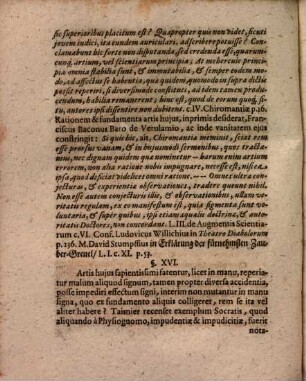 sic superioribus placitum est? Quapropter quis non videt, sicuti
jovem indici, ita eundem auriculari, adscribere potuisse? Con-
clamabunt hic forte non disputanda, sed credenda esse quarun-
cunq; artium, vel scientiarum principia; At mehercule princi-
pia omnia stabilia sunt, & immutabilia, & semper eodem mo-
do, ad affectus se habentia, quia quidem, quomodo in supra dictis
posset reperiri, si diversimode constituti, ad idem tamen produ-
cendum, habilia remanerent; hinc est, quod de eorum quoq; si-
tu, autores ipsi dissentire non dubitent. c. IV. Chiromantiæ p. 26.
Rationem & fundamenta artis hujus, inprimis desiderat, Fran-
ciscus Baconus Baro de Verulamio, ac inde vanitatem ejus
constringit: Si quis hic, ait, Chiromantia memoret, sciat rem
esse prorsus vanam, & in hujusmodi sermonibus, quos tracta-
mus, nec dignam quidem quæ nominetur -- harum enim artium
errorem, non alia ratione nobis impugnare, necesse est, nisi ea
ipsa, quod deficiat videlicet omni ratione. -- Omnes ultra con-
jecturas, & experientia observationes, tradere queunt nihil.
Non esse autem conjecturis illis, & observationibus, ullam ve-
ritatis regulam, ex eo manifestum est, quia figmenta sunt vo-
luntaria, & super quibus, ipsi etiam æqualis doctrinæ, & auto-
ritatis Doctores, non concordant. L. III. de Augmentis Scientia-
rum c. VI. Conf. Ludovicus Willichius in Theatro Diabolorum
p. 236. M. David Stumpffius in Erklärung der fürnehmsten Zau-
ber-Greuel/ L. I. c. XI. p. 59.
§. XVI.
Artis hujus sapientissimi fatentur, licet in manu, reperia-
tur malum aliquod signum, tamen propter diversa accidentia,
posse impediri effectum signi, interim non mutantur in manu
signa, quo ex fundamento aliquis colligeret, rem se ita vel
aliter habere? Taisnier recenset exemplum Socratis, quod
aliquando à Physiognomo, impudentiæ & impudicitiæ, fuerit
nota-